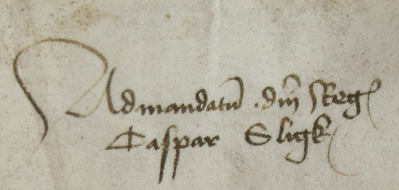 Admandatū dn̄i Reg
Caspar Sligk